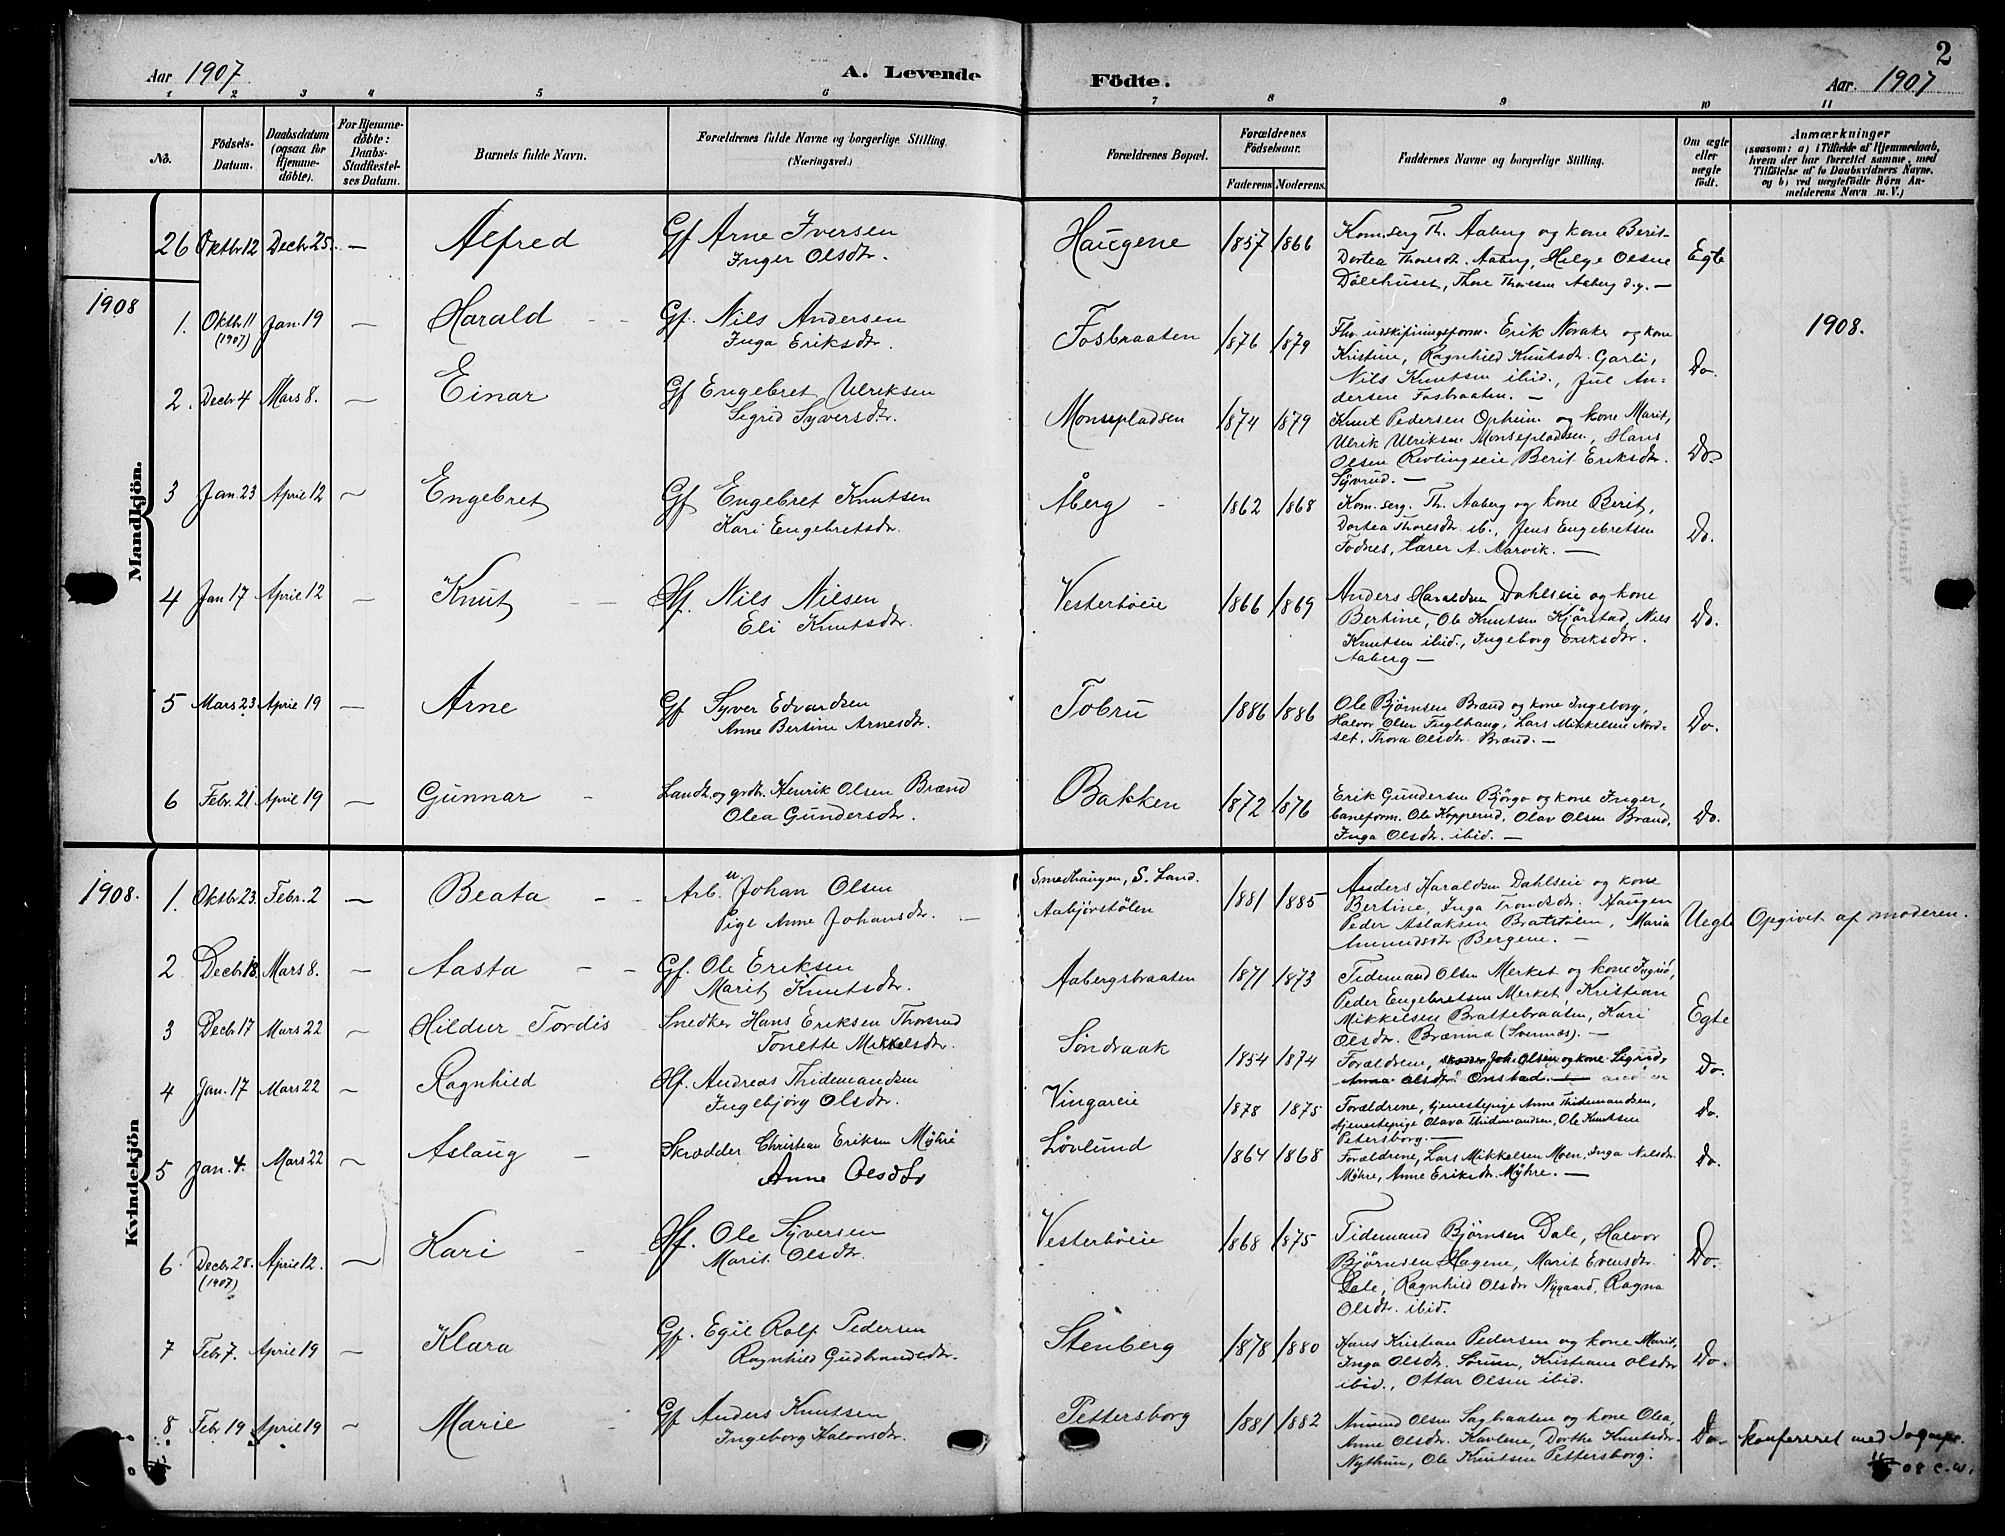 2
Aar 1907
A. Levende
Födte.
Aar 1907
1 2 3 4 5 6 7 8 9 10 11
No.
Födsels-
Datum.
Daabsdatum
(ogsaa for
Hjemme-
döbte).
For Hjemme-
döbte:
Daabs-
Stadfæstel-
ses Datum.
Barnets fulde Navn.
Forældrenes fulde Navne og borgerlige Stilling.
(Næringsvei.)
Forældrenes Bopæl.
Forældrenes
Födselsaar.
Faderens
Moderens.
Faddernes Navne og borgerlige Stilling.
Om ægte
eller
uægte
födt.
Anmærkninger
(saasom: a) i Tilfælde af Hjemmedaab,
hvem der har forrettet samme, med
Tilföielse af to Daabsvidners Navne,
og b) ved uægtefödte Börn An-
melderens Navn m. V.)
Mandkjön.
26 Oktbr 12 Decbr 25. — Alfred
Gf Arne Iversen
Inger Olsdtr.
Haugene 1857 1866
Kom.serg Th. Aaberg og kone Berit
Dortea Thoresdt. Aaberg, Helge Olsen
Dölehuset, Thore Thoresen Aaberg d.y. —
Egte
1908
1. Oktbr 11 Jan. 19 — Harald
(1907)
Gf. Nils Andersen
Inga Eriksdtr.
Fosbraaten 1876 1879
Fhv. udskiftningsform. Erik Novaker og kone
Kristine, Ragnhild Knutsdtr. Garli,
Nils Knutsen ibid., Jul An-
dersen Fosbraaten. —
Do.
1908.
2. Decbr 4 Mars 8. — Einar
Gf Engebret Ulriksen
Sigrid Syversdtr.
Monsepladsen 1874 1879
Knut Pedersen Opheim og kone Marit,
Ulrik Ulriksen Monsepladsen, Hans
Olsen Revlingseie Berit Eriksdtr.
Syvrud. —
Do.
3 Jan. 23 April 12 — Engebret
Gf Engebret Knutsen
Kari Engebretsdtr.
Åberg 1862 1868
Kom. serg. Th. Aaberg og kone Berit,
Dortea Thoresdtr. ib., Jens Engebretsen
Fodnes, Lærer A. Aarvik. —
Do.
4 Jan 17 April 12 — Knut
Hf. Nils Nilsen
Eli Knutsdtr.
Vesterböeie 1866 1869
Anders Haraldsen Dahlseie og kone
Bertine, Ole Knutsen Kjörstad, Nils
Knutsen ibid., Ingeborg Eriksdtr.
Aaberg —
Do.
5 Mars 23 April 19 — Arne
Gf. Syver Edvardsen
Anne Bertine Arnesdtr.
Tobru 1886 1886
Ole Bjørnsen Brænd og kone Ingeborg,
Halvor Olsen Fuglhaug, Lars Mikkelsen Nord-
set, Thora Olsdtr. Brænd. —
Do.
6 Febr. 21 April 19 — Gunnar
Landh. og grdbr. Henrik Olsen Brænd
Olea Gundersdtr.
Bakken 1872 1876
Erik Gundersen Björgo og kone Inger,
baneform. Ole Kopperud, Olav Olsen Brænd,
Inga Olsdtr. ibid. —
Do.
1908.
Kvindekjön
1. Oktbr 23. Febr. 2 — Beata
Arb. u Johan Olsen
Pige Anne Johansdtr. —
Smedhaugen, S. Land.
Aabjörstölen
1881 1885
Anders Haraldsen Dahlseie og kone
Bertine, Inga Trondsdtr. Haugen
Peder Aslaksen Bratstölen, Maria
Amundsdtr Bergene. —
Uegte
Opgivet af moderen.
2 Decbr 18. Mars 8. — Aasta
Gf. Ole Eriksen
Marit Knutsdtr.
Aabergsbraaten 1871 1873
Tidemand Olsen Merket og kone Ingrid,
Peder Engebretsen Merket, Kristian
Mikkelsen Brattebraaten, Kari
Olsdtr. Brænna (Svennes). —
Egte
3 Decbr 17 Mars 22 — Hildur Tordis
Snedker Hans Eriksen Thorsrud
Tonette Mikkelsdtr.
Söndraak 1854 1874
Forældrene, Joh. Olsen og kone Sigrid,
Anna Olsdtr. Onstad.
Do.
4 Jan. 17 Mars 22 — Ragnhild
Hf. Andreas Thidemandsen
Ingebjörg Olsdtr.
Vingareie 1878 1875
Forældrene, tjenestepige Anne Thidemandsen,
tjenestepige Olava Thidemandsen, Ole Knutsen
Petersborg. —
Do.
5 Jan. 4. Mars 22 — Aslaug
Skrædder Christian Eriksen Myhre
Anne Olsdtr
Lövlund 1864 1868
Forældrene, Lars Mikkelsen Moen, Inga Nilsdtr.
Myhre, Anne Eriksdtr. Myhre. —
Do.
6 Decbr 28. April 12. — Kari
(1907)
Hf. Ole Syversen
Marit Olsdtr.
Vesterböeie 1868 1875
Tidemand Bjørnsen Dale, Halvor
Bjørnsen Hagene, Marit Evensdtr.
Dale, Ragnhild Olsdtr Nygaard, Ragna
Olsdtr. ibid.
Do.
7 Febr 7. April 19 — Klara
Gf. Egil Rolf Pedersen
Ragnhild Gudbrandsdtr.
Stenberg 1878 1880
Hans Kristian Pedersen og kone Marit,
Inga Olsdtr. Sörum, Kristiane Olsdtr
ibid., Ottar Olsen ibid.
Do.
8 Febr 19 April 19 — Marie
Gf Anders Knutsen
Ingeborg Halvorsdtr.
Pettersborg 1881 1882
Amund Olsen Sagbraaten og kone Olea,
Anne Olsdtr. Kavlene, Dorthe Knutsdtr.
Nythun, Ole Knutsen Pettersborg.
Do.
Konfereret med Sognepr.
08 C.W.